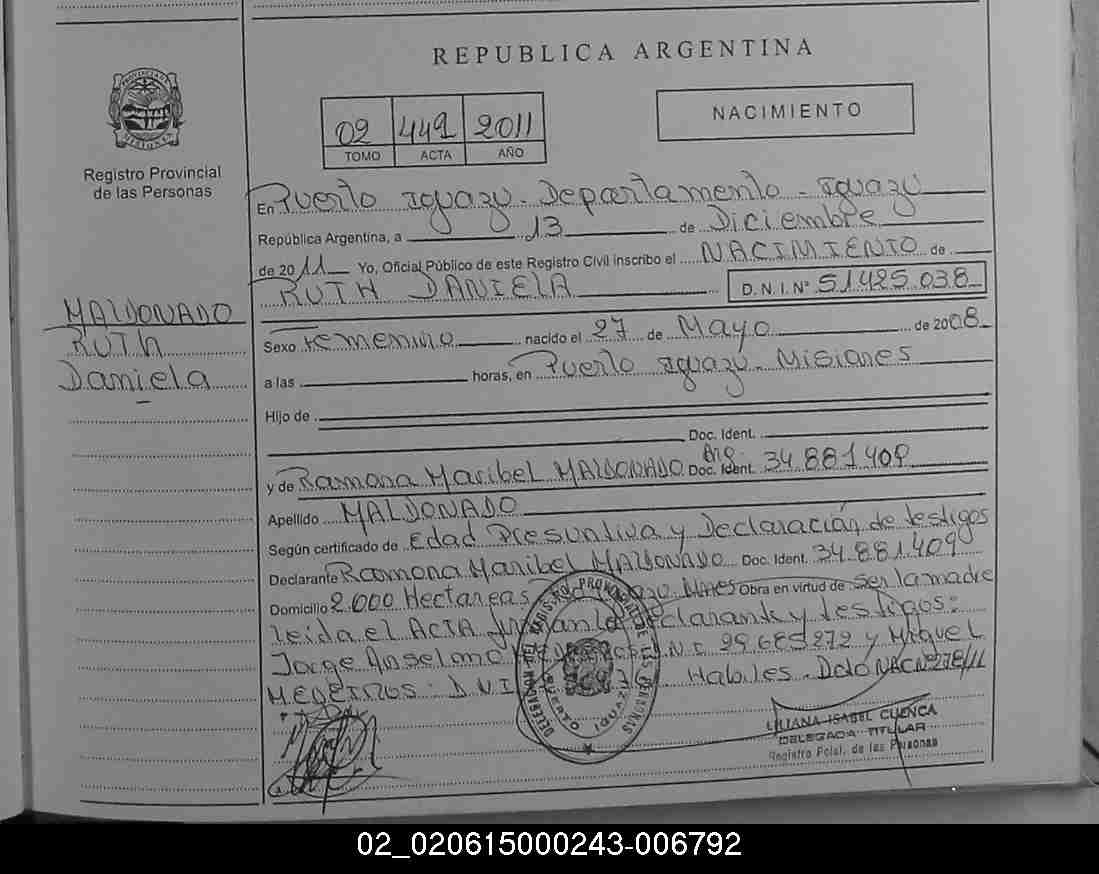 REPUBLICA ARGENTINA
PROVINCIA DE MISIONES
Registro Provincial
de las Personas
02 449 2011
TOMO ACTA AÑO
NACIMIENTO
En Puerto Iguazú - Departamento - Iguazú
República Argentina, a 13 de Diciembre
de 2011 Yo, Oficial Público de este Registro Civil inscribo el NACIMIENTO de
RUTH DANIELA D.N.I.N° 51.425.038
MALDONADO
RUTH
Daniela
Sexo Femenino nacido el 27 de Mayo de 2008
a las horas, en Puerto Iguazú - Misiones
Hijo de
Doc. Ident.
y de Ramona Maribel MALDONADO Arg. Doc. Ident. 34.881.409
Apellido MALDONADO
Según certificado de Edad Presuntiva y Declaración de testigos
Declarante Ramona Maribel MALDONADO Doc. Ident. 34.881.409
Domicilio 2.000 Hectareas Mnes Obra en virtud de ser la madre
leida el ACTA declarante y testigos:
Jorge Anselmo D.N.I. 29.685.272 y Miguel
MEDEIROS: D.N.I Habiles. Dcto NAC Nº 278/11
DELEGACION REGISTRO PROVINCIAL DE LAS PERSONAS
PUERTO IGUAZU
LILIANA ISABEL CUENCA
DELEGADA TITULAR
Registro Pcial. de las Personas
02_020615000243-006792